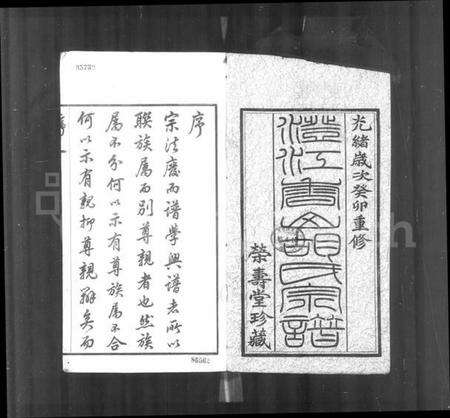 光緒歲次癸卯重修
澄江氏宗譜
榮壽堂珍藏
序
宗法廢而譜學興譜者所以
聯族屬而別尊親者也然族
屬不分何以示有尊族屬不合
何以示有親抑尊親辨矣而